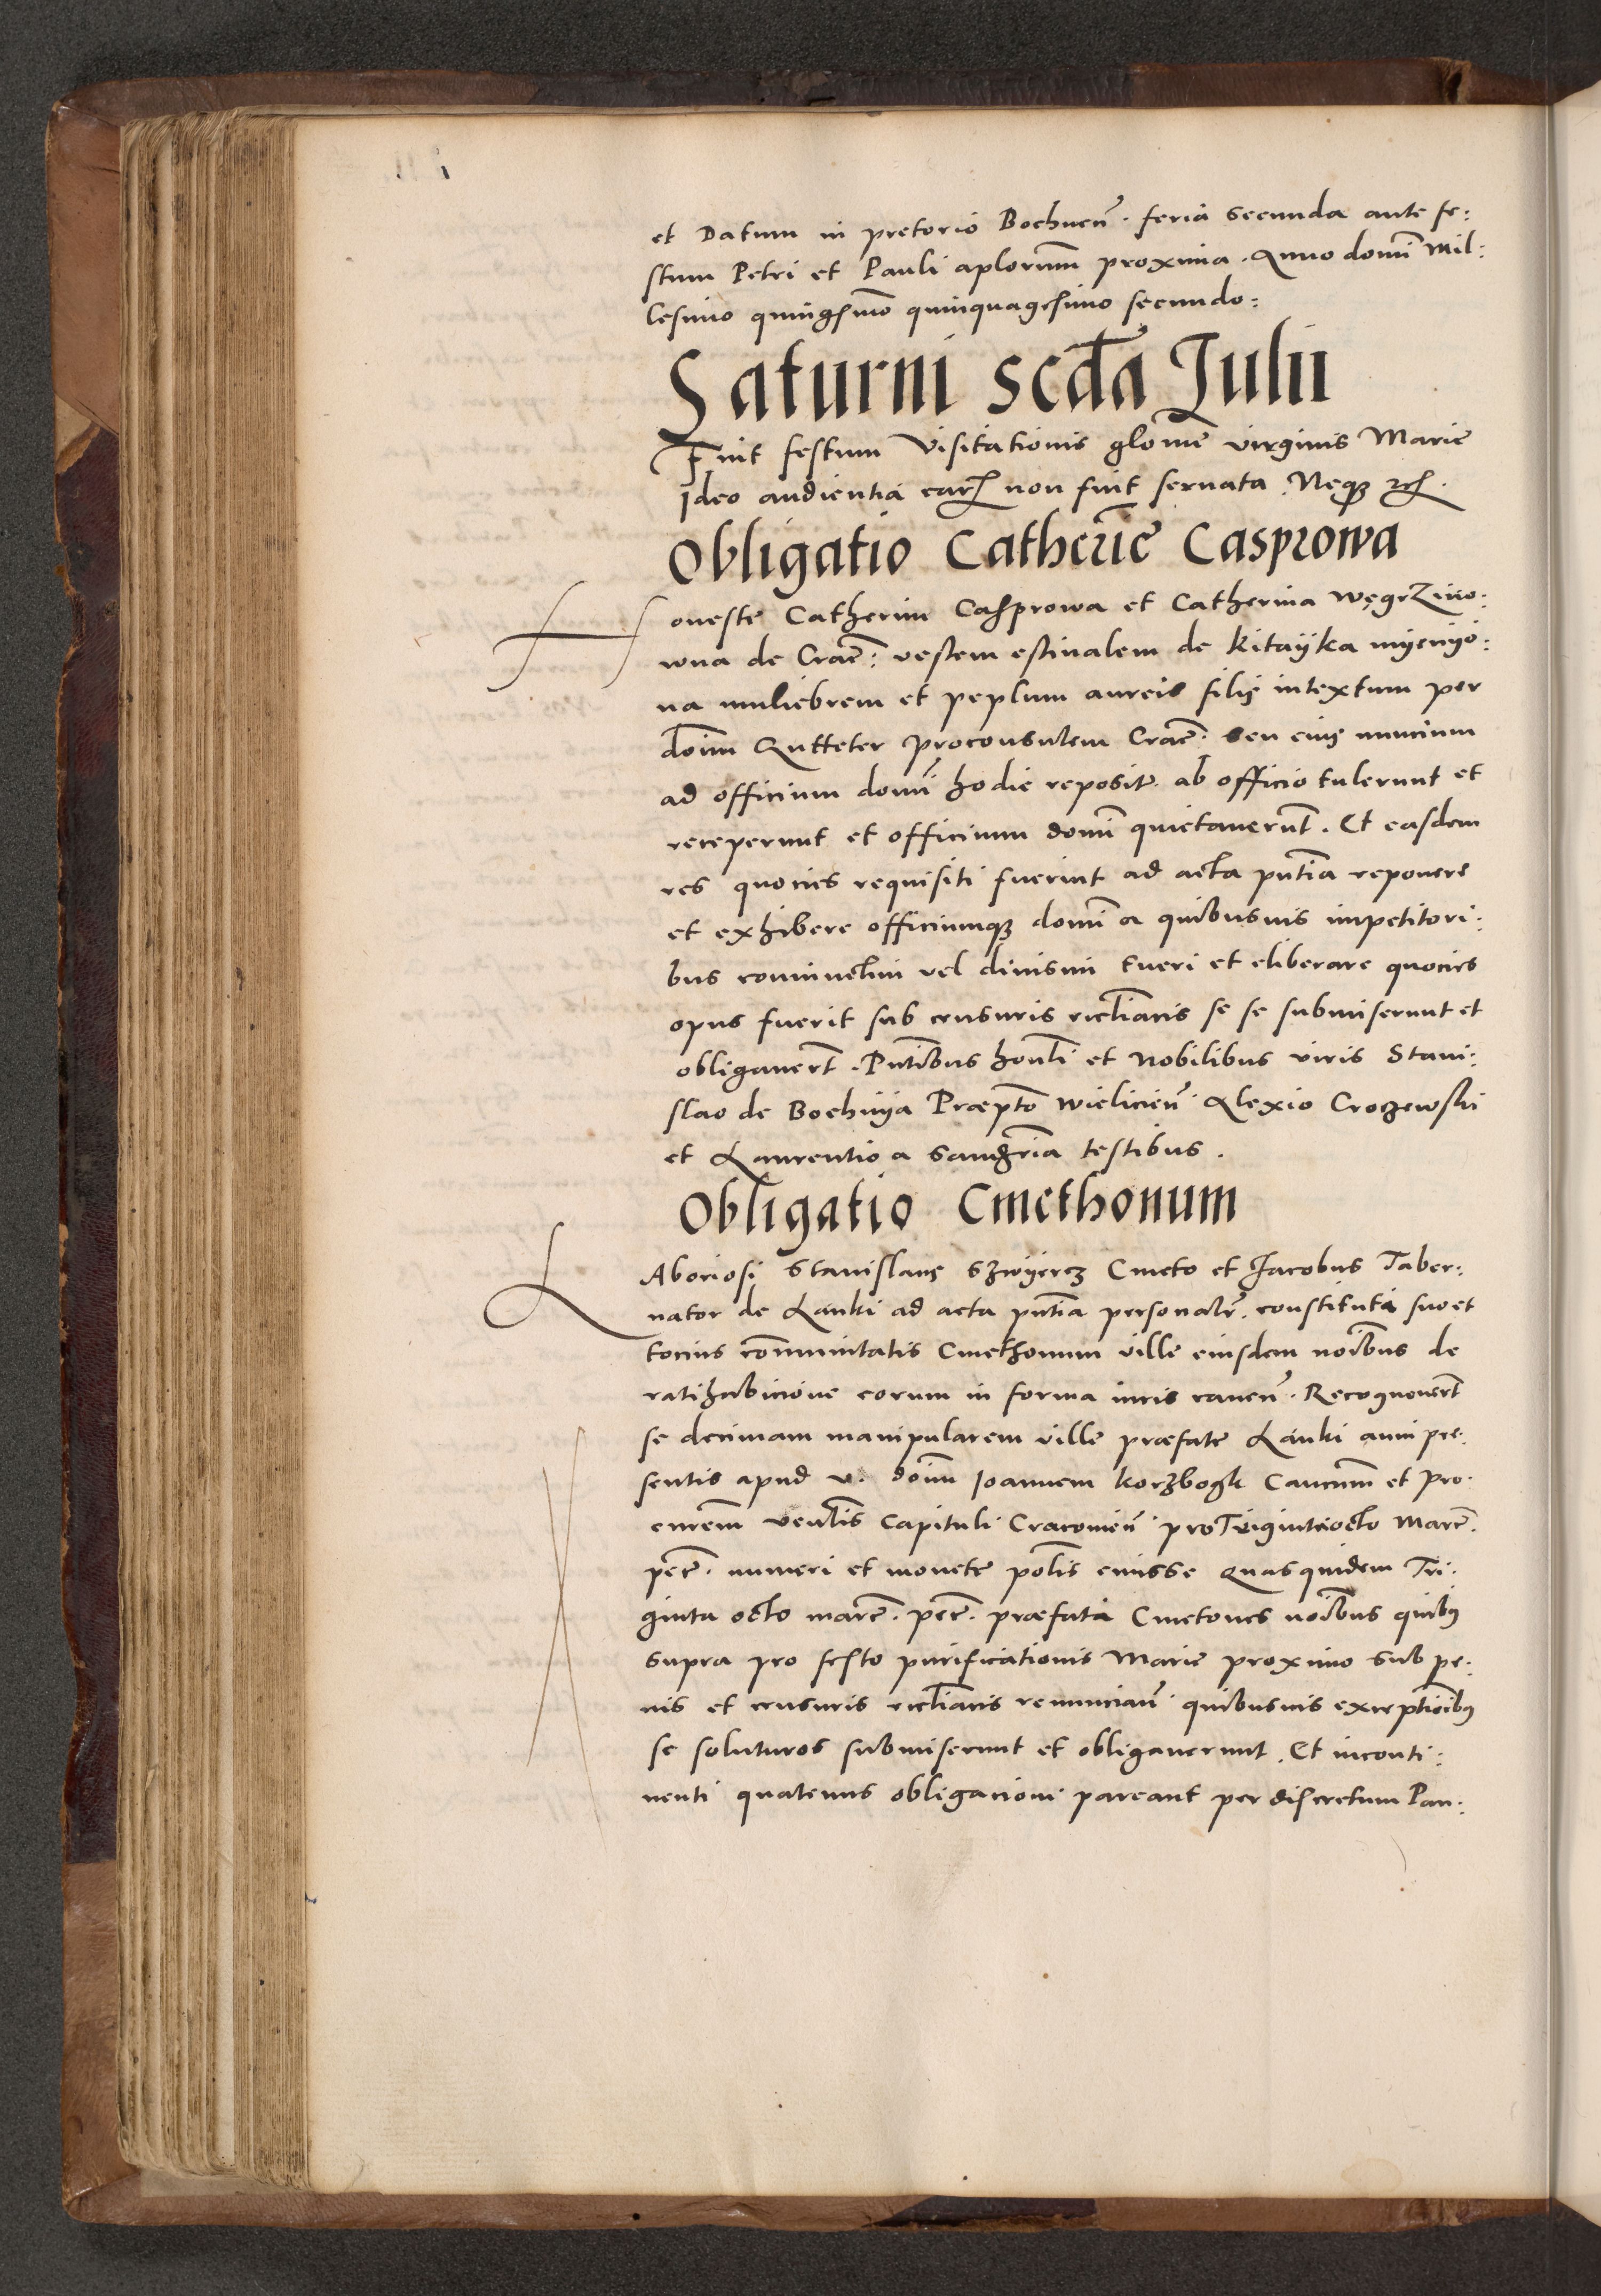 et Datum in pretorio Bochnen̄. feria secunda ante fe:
stum Petri et Pauli aplorum̄ proxima. Anno domī Mil:
lesimo quingsmo quinquagesimo secundo:
Saturni scd̄a Julii
Fuit festum Visitationis glo͞me virginis Marie
Ideo audientia non fuit seruata. Neqȝ
Obligatio Catherīe Casprowa
Honeste Catherin Casprowa et Catherina WęgrZino:
wna de Crac̄: vestem estiualem de Kitayka myenyo:
na muliebrem et peplum aureis filis intextum per
dōim Qutteter proconsulem Crac̄. seu eius nuncium
ad officium domī hodie reposit. ab officio tulerunt et
receperunt et officium domī quietauerūt. Et easdem
res quocies requisiti fuerint ad acta pn̄tia reponere
et exhibere officiumqȝ domī a quibusuis impetitori:
bus coniunctim vel diuisim tueri et eliberare quocies
opus fuerit sub censuris eccl̄iacis se se submiserunt et
obligauert̄. Pn̄tibus honl̄i et Nobilibus viris Stani:
slao de Bochnya Præpto Wielicien̄. Alexio Croczewski
et Laurentio a testibus.
Obligatio Cmethonum
LAboriosi Stanislaus Szwyercz Cmeto et Jacobus Taber:
nator de Lanki ad acta pn̄tia personalr̄. constituti suo et
tocius cōmunitatis Cmethonum ville eiusdem noībus de
ratihabicione eorum in forma iuris cauen̄. Recognouert̄
se decimam manipularem ville præfate Lanki anni pre:
sentis apud v. dōim Ioannem Korzbogk Cancm̄ et pro:
curem̄ Venl̄is Capituli Cracouien̄. pro Trigintaocto Marc̄.
pec̄. numeri et monete pol̄is emisse Quas quidem Tri:
ginta octo marc̄. pec̄. præfati Cmetones noībus quibȝ
supra pro festo purificationis Marie proximo sub pe:
nis et censuris eccl̄iacis renunciaū. quibusuis exceptioībȝ
se soluturos submiserunt et obligauerunt. Et inconti:
nenti quatenus obligacioni pareant per discretum Pau: